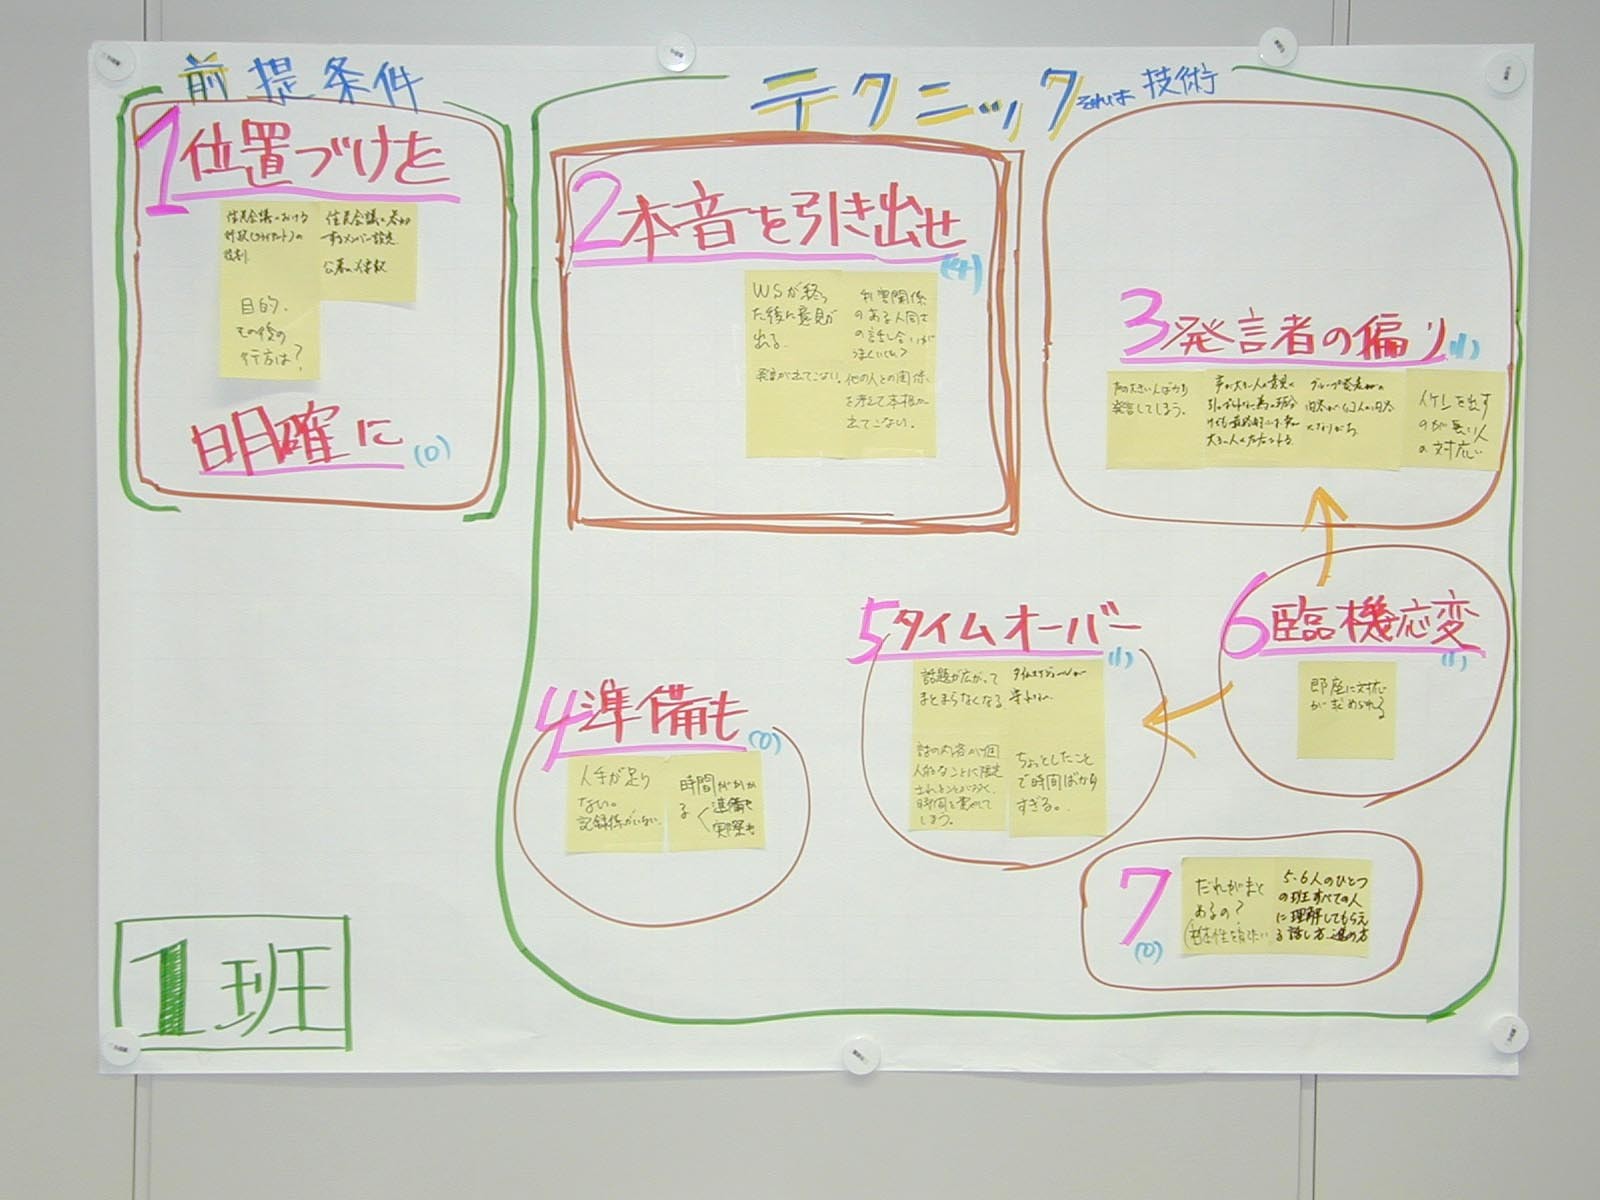 前提条件
1位置づけを
住民会議における
の
役割
目的.
その後の
行方は?
住民会議に参加
するメンバー設定
公募の
明確に
(0)
テクニック それは 技術
2本音を引き出せ
(4)
WSが終っ
た後に意見が
出る.
発言が出てこない.
利害関係
のある人同士
の話し合いが
他の人との関係
を考えて本根が
出てこない.
3発言者の偏り
(1)
声の大きい人ばかり
発言してしまう.
声の大きい人の意見に
大きい人
グループ発表が
イケンを出す
のが長い人
の対応
4準備も
(0)
人手が足り
ない。
記録係がいない.
時間がかか
る
準備も
実際も
5タイムオーバー
(1)
話題が広がって
まとまらなくなる
タイムスケジュールが
守れない
話の内容が個
人的なことに限定
されることが多く、
時間を費やして
しまう。
ちょっとしたこと
で時間ばかり
すぎる.
6臨機応変
(1)
即座に対応
が求められる
7
(0)
だれがまと
めるの?
5・6人のひとつ
の班すべての人
に理解してもらえ
る話し方、進め方
1班